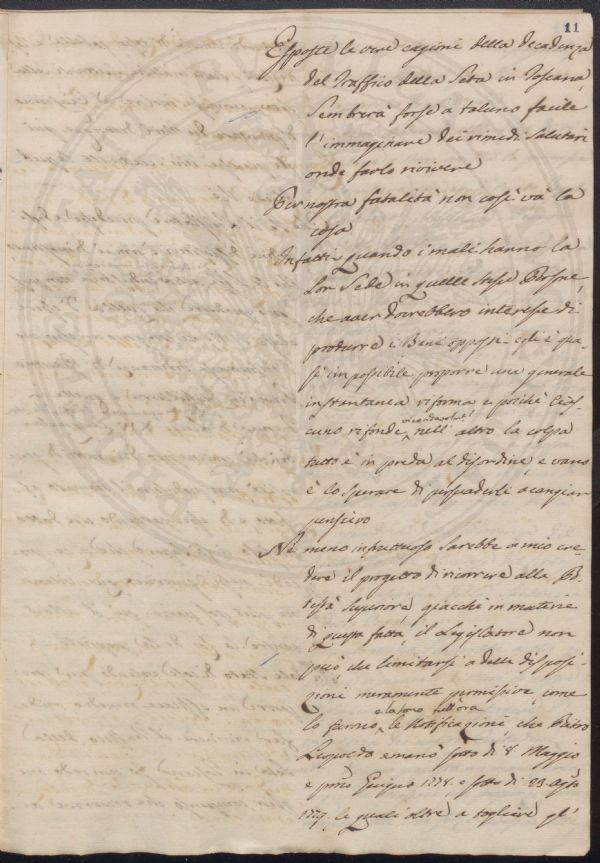 11
Esposte le vere cagioni della decadenza
del Traffico della Seta in Toscana,
Sembrerà forse a taluno facile
l'immaginare dei rimedi salutari
onde farlo rivivere
Per nostra fatalità non così và la
cosa
Infatti quando i mali hanno la
Lor Sede in quelle stesse Persone,
che aver dovrebbero interesse di
produrre i Beni opposti egli è qua-
si impossibile proporre una generale
instantanea riforma e poichè cias-
cuno rifonde vicendevolmente nell' altro la colpa
tutto è in preda al disordine, e vano
è lo sperare di persuaderli a cangiar
pensiero
Nè meno infruttuoso sarebbe a mio cre-
dere il progetto di ricorrere alla Po-
testà Superiore, giacchè in materie
di questa fatta il Legislatore non
può, che limitarsi a delle disposi-
zioni meramente permissive, come
lo furono, e lo sono tuttora le Notificazioni, che Pietro
Leopoldo emanò sotto di 8. Maggio,
e primo Giugno 1778. e sotto di 23. Agto
1779. le quali oltre a togliere gl'